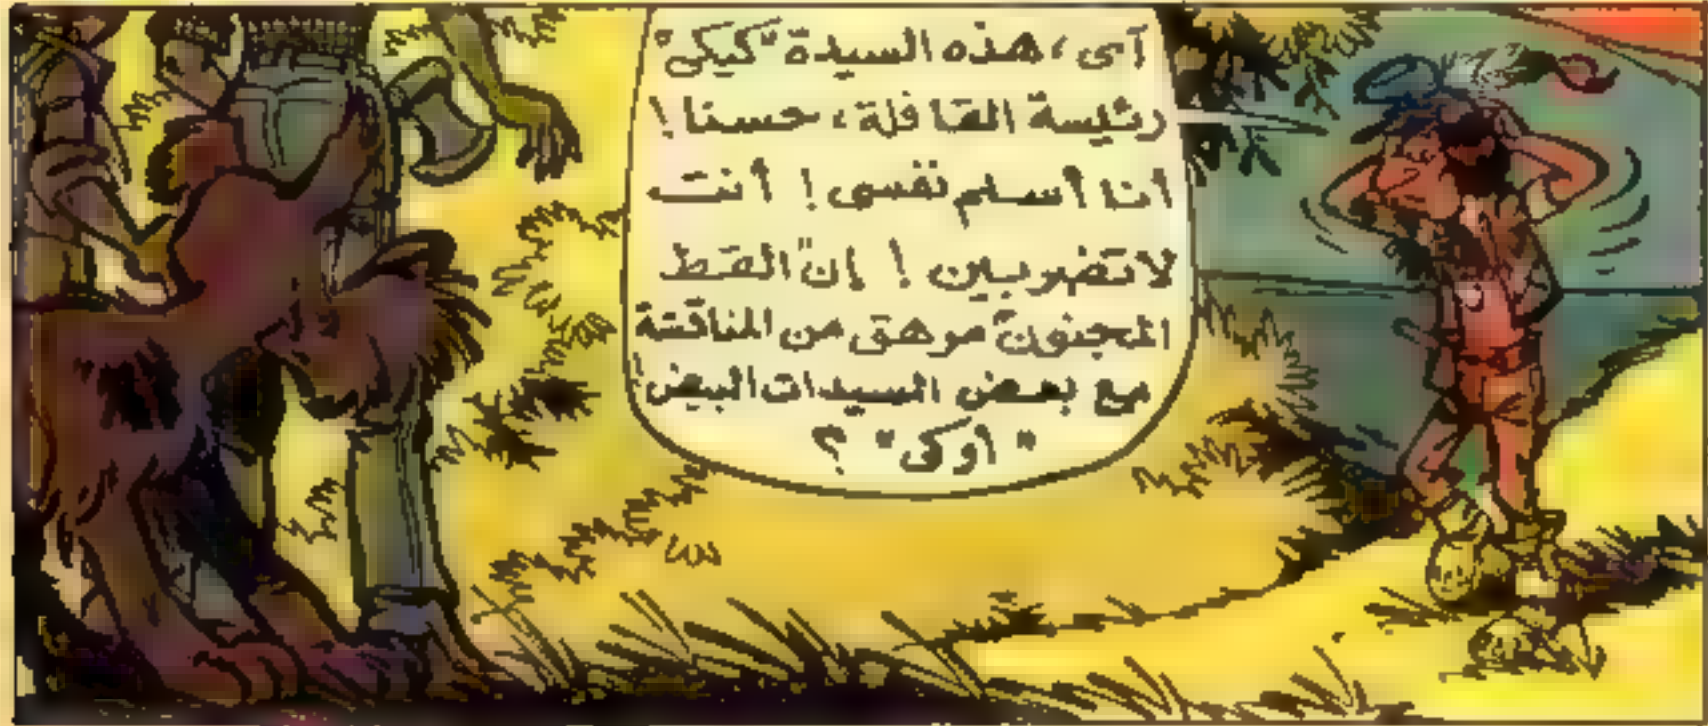 آى، هذه السيدة "كيكى"
رئيسة القافلة، حسنا!
أنا أسلم نفسى! أنت
لاتضربين! إن "القط
المجنون" مرهق من المناقشة
مع بعض السيدات البيض!
"أوكى" ؟